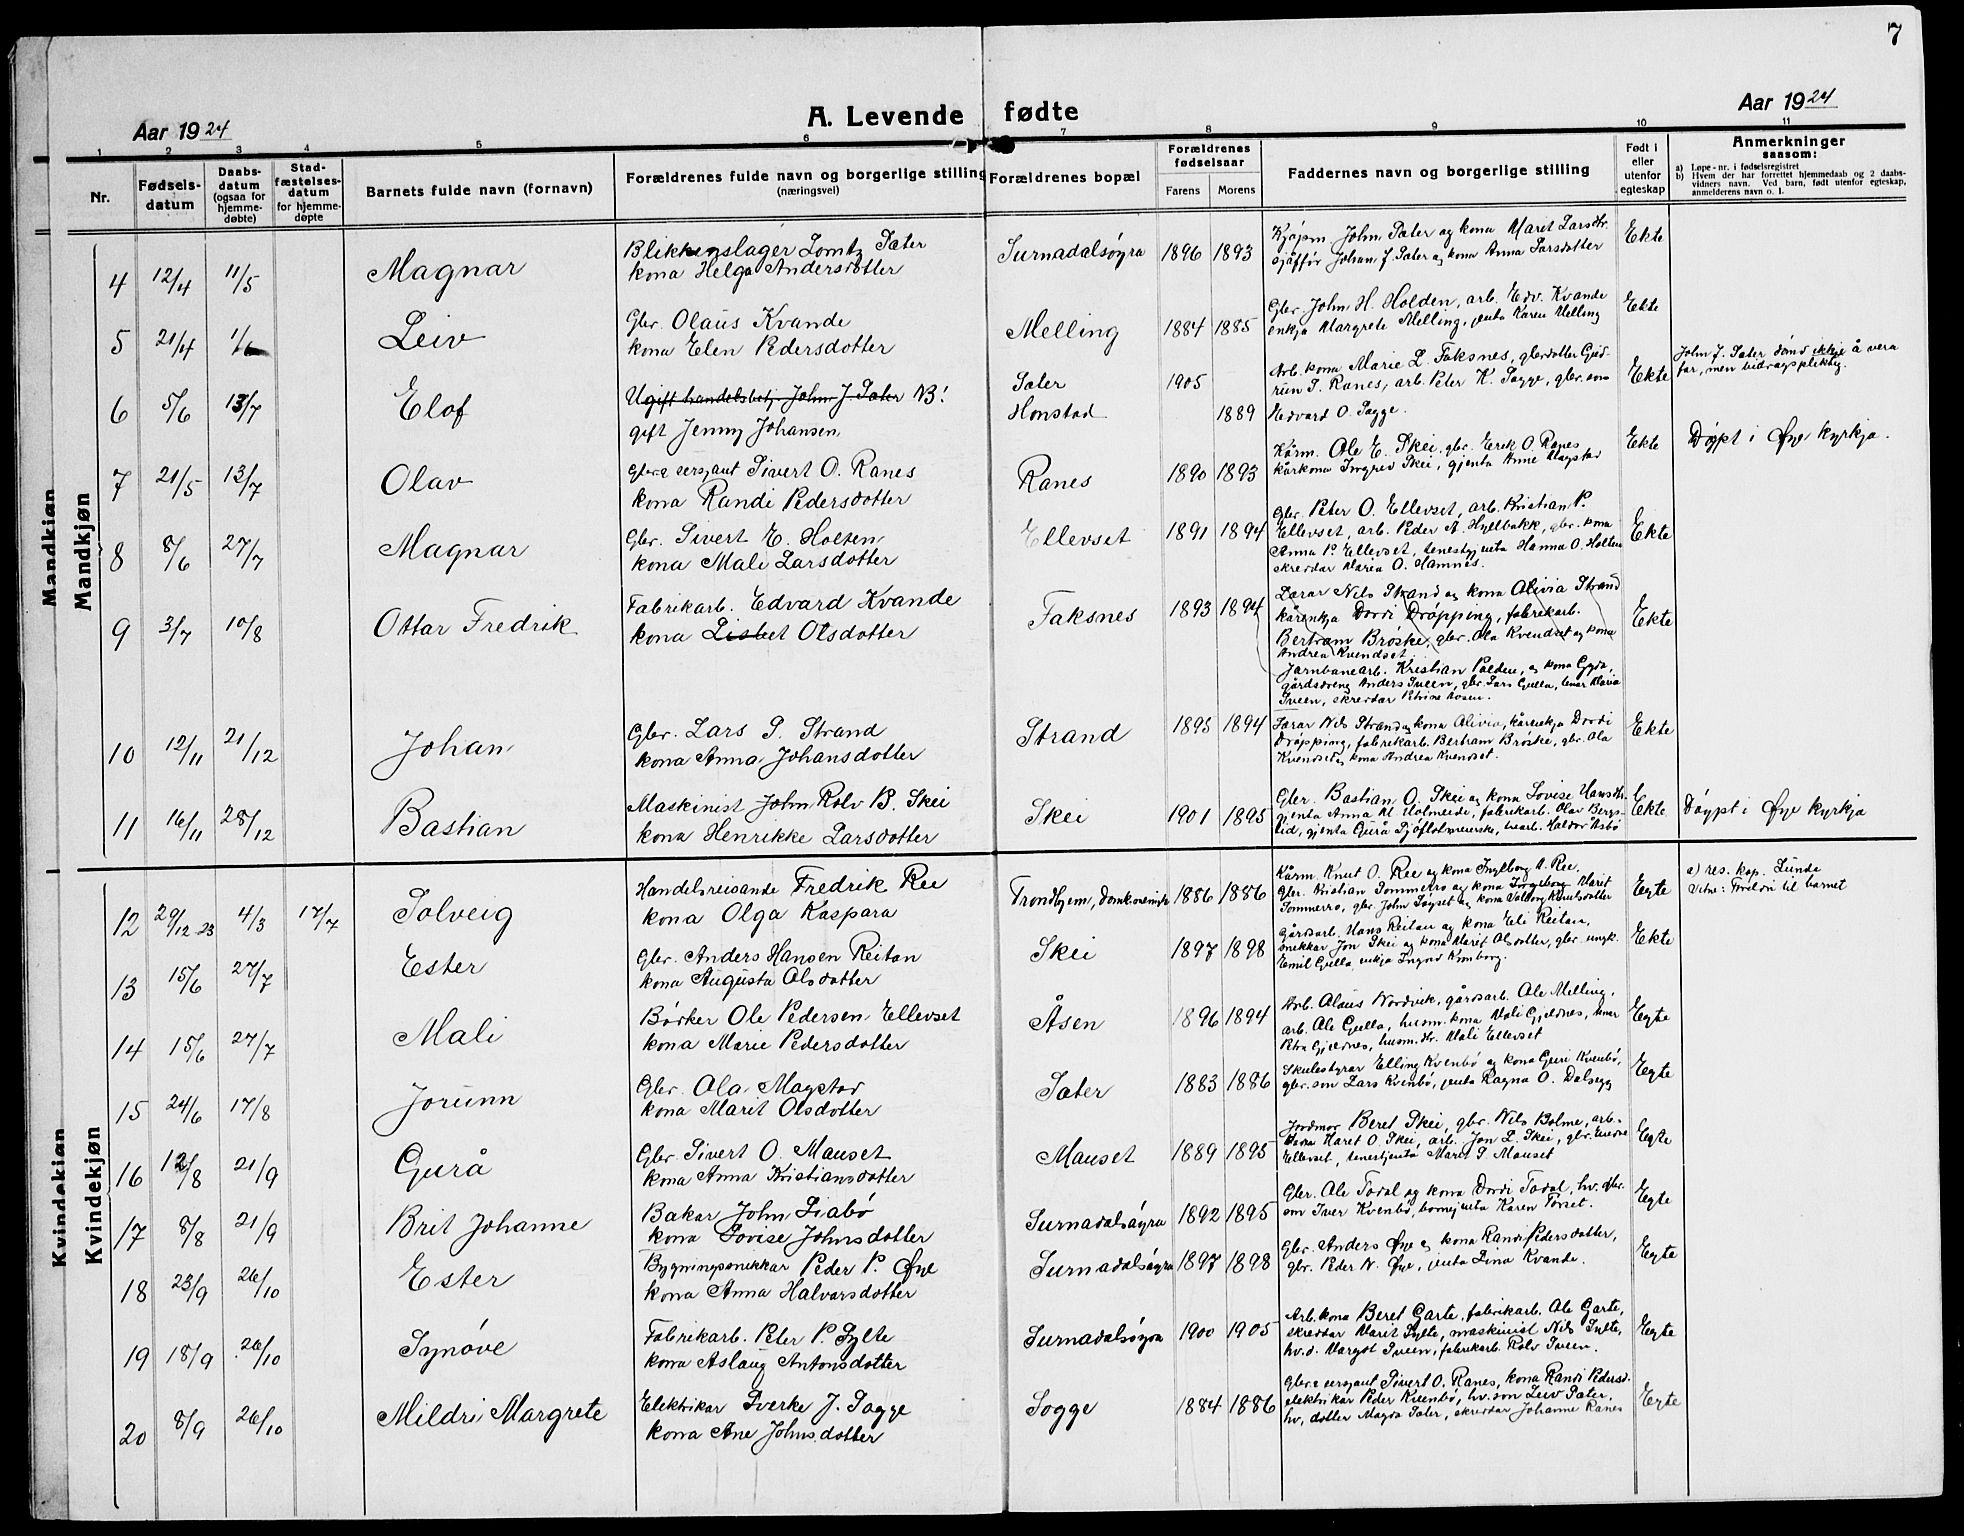 7
A. Levende fødte
Aar 1924
Aar 1924
1 2 3 4 5 6 7 8 9 10 11
Nr.
Fødsels-datum
Daabs-datum (ogsaa for hjemme-døbte)
Stad-fæstelses-datum for hjemme-døpte
Barnets fulde navn (fornavn)
Forældrenes fulde navn og borgerlige stilling (næringsvei)
Forældrenes bopæl
Forældrenes fødselsaar
Farens Morens
Faddernes navn og borgerlige stilling
Født i eller utenfor egteskap
Anmerkninger
saasom:
a) Løpe-nr. i fødselsregistret
b) Hvem der har forrettet hjemmedaab og 2 daabs-vidners navn. Ved barn, født utenfor egteskap, anmelderens navn o. l.
Mandkjøn
Mandkjøn
4 12/4 11/5 Magnar
Blikkenslager Lomtz Sæter
kona Helga Andersdotter
Surnadalsøyra 1896 1893
Kjøpm. John Sæter og kona Marit Larsdtr.
sjåffør Johan J. Sæter og kona Anna Larsdotter
Ekte
5 21/4 1/6 Leiv
Gbr. Olaus Kvande
kona Elen Pedersdotter
Melling 1884 1885
Gbr. John H. Holden, arb. Edv. Kvande
enkja Margrete Melling, jenta Karen Melling
Ekte
6 5/6 13/7 Elof
Ugift handelsbetj. John J. Sæter NB!
gift Jenny Johansen
Sæter 1905
Honstad 1889
Arb. kona Marie L. Faksnes, gbrdotter Gud-
run S. Ranes, arb. Peter K. Sogge, gbr. son
Hedvard O. Sogge.
Ekte
John J. Sæter dømd ikkje å vera
far, men bidragspliktig.
7 21/5 13/7 Olav
Gbr. o sersjant Sivert O. Ranes
kona Randi Pedersdotter
Ranes 1890 1893
Kårm. Ole E. Skei, gbr. Erik O. Ranes
kårkona Ingrid Skei, gjenta Anne Magstad
Ekte
Døypt i Øye kyrkja.
8 8/6 27/7 Magnar
Gbr. Sivert E. Holten
kona Mali Larsdotter
Ellevset 1891 1894
Gbr. Peter O. Ellevset, arb. Kristian P.
Ellevset, arb. Peder A. Hyllbakk, gbr. kona
Anna P. Ellevset, tenestjenta Hanna O. Holten
skreddar Maren O. Hamnes.
Ekte
9 3/7 10/8 Ottar Fredrik
Fabrikarb. Edvard Kvande
kona Lisbet Olsdotter
Faksnes 1893 1894
Lærar Nils Strand og kona Olivia Strand
kårenkja Dordi Drøpping, fabrikarb.
Bertram Brøske, gbr. Ola Kvendset og kona
Andrea Kvendset.
Jarnbanearb. Kristian Polden, og kona Gyda,
gårdsdreng Anders Sveen, gbr. Lars Gulla, Maria
Sveen, skreddar Petrine Mosen.
Ekte
10 12/11 21/12 Johan
Gbr. Lars P. Strand
kona Anna Johansdotter
Strand 1895 1894
Lærar Nils Strand og kona Olivia, kårenkja Dordi
Drøpping, fabrikarb. Bertram Brøske, gbr. Ola
Kvendset og kona Andrea Kvendset.
Ekte
11 16/11 28/12 Bastian
Maskinist John Rolv B. Skei
kona Henrikke Larsdotter
Skei 1901 1895
Gbr. Bastian O. Skei og kona Lovise Hansdtr.
gjenta Anna M. Holmeide, fabrikarb. Olav Bergs-
lid, gjenta Gurå Haldor Åsbø
Ekte
Døypt i Øye kyrkja
Kvindekjøn
Kvindekjøn
12 29/12 23 4/3 17/7 Solveig
Handelsreisande Fredrik Ree
kona Olga Kaspara
Trondhjem, domkirkens 1886 1886
Kårm. Knut O. Ree og kona Ingeborg A. Ree.
Gbr. Kristian Sommerro og kona Ingeborg, Marit
Sommerro, gbr. John Sogset og kona Valborg Knutsdotter
Egte
a) res. kap. Lunde
Vitne: Foreldri til barnet
13 15/6 27/7 Ester
Gbr. Anders Hansen Reitan
kona Augusta Olsdotter
Skei 1897 1898
Gårdsarb. Hans Reitan og kona Eli Reitan,
snikkar Jon Skei og kona Marit Olsdotter, gbr. ungk.
Emil Gulla, enkja Ingrid Romborg.
Ekte
14 15/6 27/7 Mali
Børker Ole Pedersen Ellevset
kona Marie Pedersdotter
Åsen 1896 1894
Arb. Olaus Nordvik, gårdsarb. Ole Melling,
arb. Ole Gulla, husm. kona Mali Gjeldnes,
Petra Gjeldnes, husm. dtr. Mali Ellevset
Egte
15 24/6 17/8 Jorunn
Gbr. Ola Magstad
kona Marit Olsdotter
Sæter 1883 1886
Skulestyrar Elling Kvenbø og kona Guri Kvenbø,
gbr. son Lars Kvenbø, jenta Ragna O. Dalsegg
Egte
16 12/8 21/9 Gurå
Gbr. Sivert O. Mauset
kona Anna Kristiansdotter
Mauset 1889 1895
Jordmor Beret Skei, gbr. Nils Bolme, arb.
Maret O. Skei, arb. Jon L. Skei, gbr.
Ellevset, tenestjenta Marit P. Mauset
Egte
17 8/8 21/9 Brit Johanne
Bakar John Siabø
kona Lovise Johnsdotter
Surnadalsøyra 1892 1895
Gbr. Ole Todal og kona Dordi Todal, hv. gbr.
son Iver Kvenbø, barnejenta Karen Torset.
Egte
18 23/9 26/10 Ester
Bygningssnikkar Peder P. Øye
kona Anna Halvarsdotter
Surnadalsøyra 1897 1898
Gbr. Anders Øye og kona Randi Pedersdotter,
gbr. Peder N. Øye, jenta Lina Kvande.
Egte
19 18/9 26/10 Synøve
Fabrikarb. Peter P. Sylte
kona Aslaug Antonsdotter
Surnadalsøyra 1900 1905
Arb. kona Beret Garte, fabrikarb. Ole Garte,
skreddar Marit Sylte, maskinist Nils Sylte,
hv. d. Margot Sveen, fabrikarb. Rolv Sveen.
Egte
20 8/9 26/10 Mildri Margrete
Elektrikar Sverke J. Sogge
kona Ane Johnsdotter
Sogge 1884 1886
Gbr. o sersjant Sivert O. Ranes, kona Randi Pedersd.
elektrikar Peder Kvenbø, hv. son Leiv Sæter,
hv. dotter Magda Sæter, skreddar Johanne Ranes
Egte